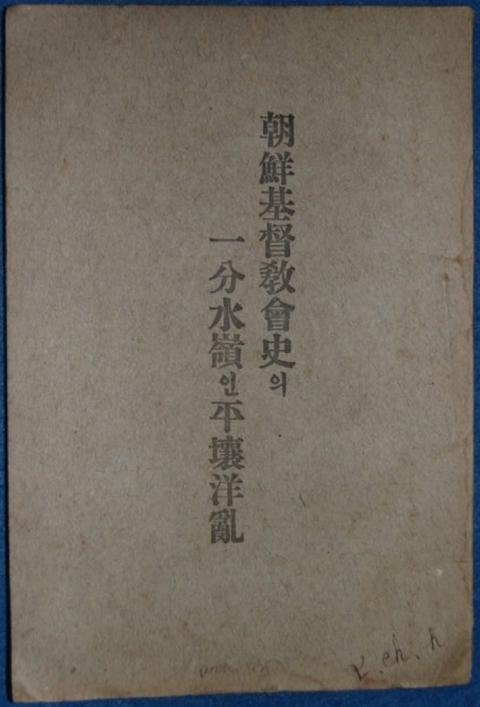 朝鮮基督敎會史의
一分水嶺인平壤洋亂
K. ch. h